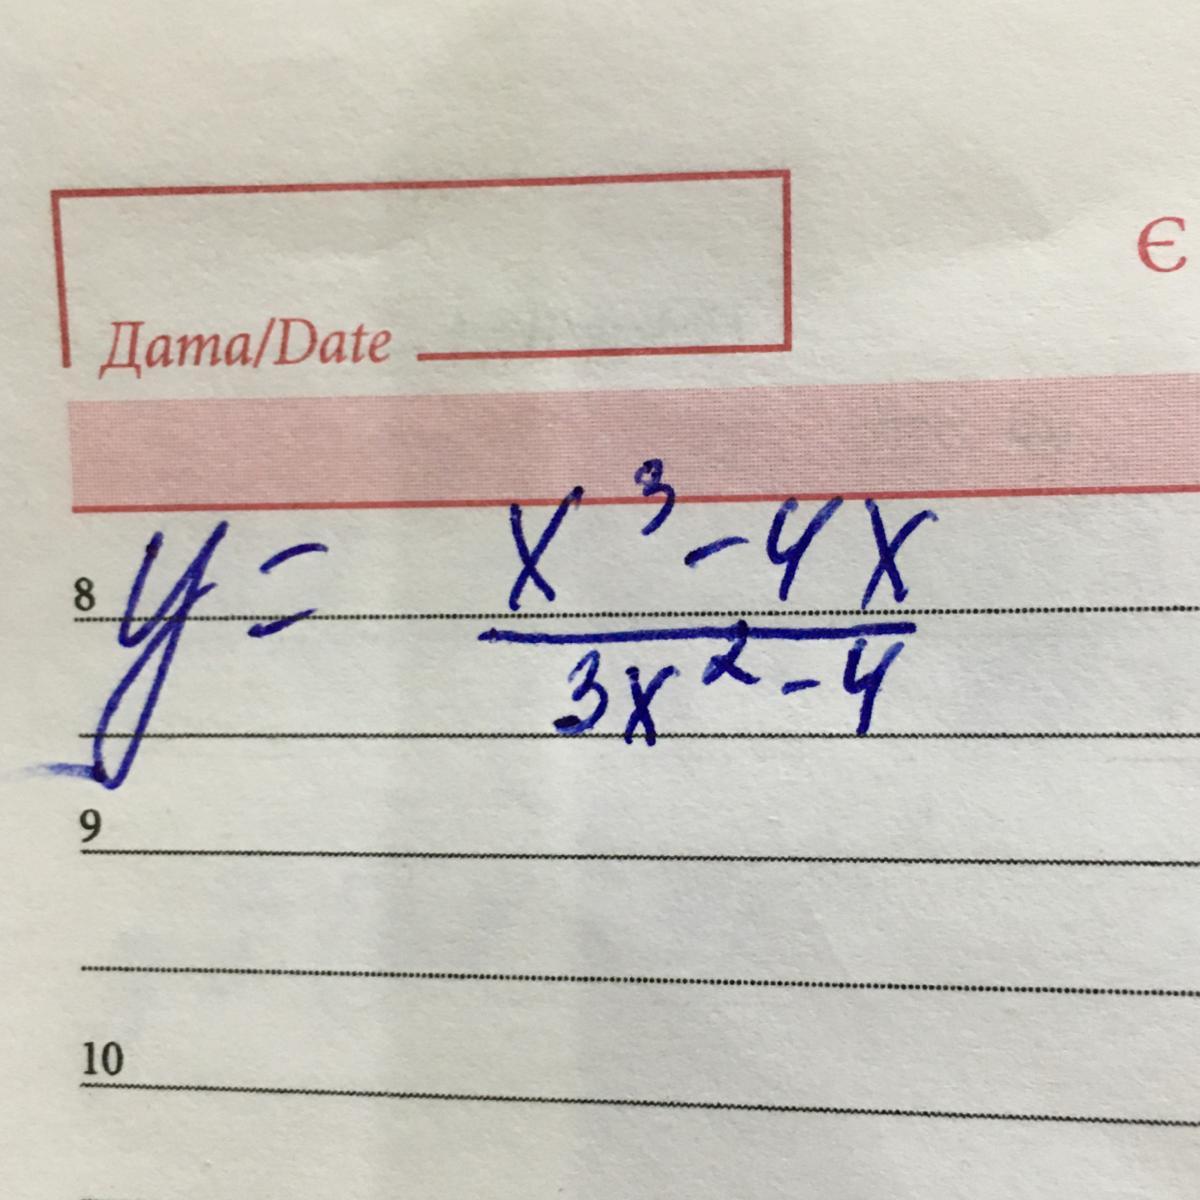 Є
Дата/Date
y = x³ - 4x / 3x² - 4
8
9
10